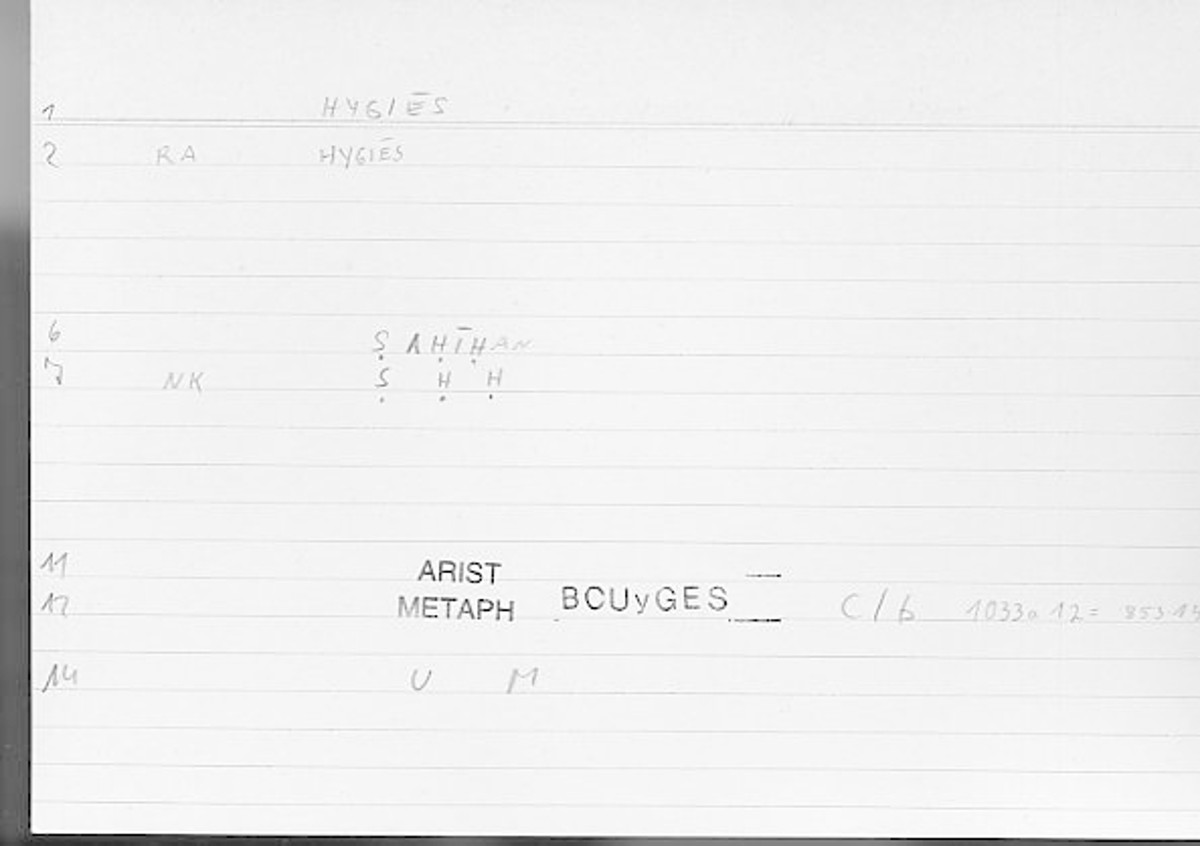 1 HYGIĒS
2 RA HYGIĒS
6 Ṣ AḤĪḤAN
7 NK Ṣ Ḥ Ḥ
11 ARIST
12 METAPH BCUyGES C/b 1033a 12 = 853.15
14 U M